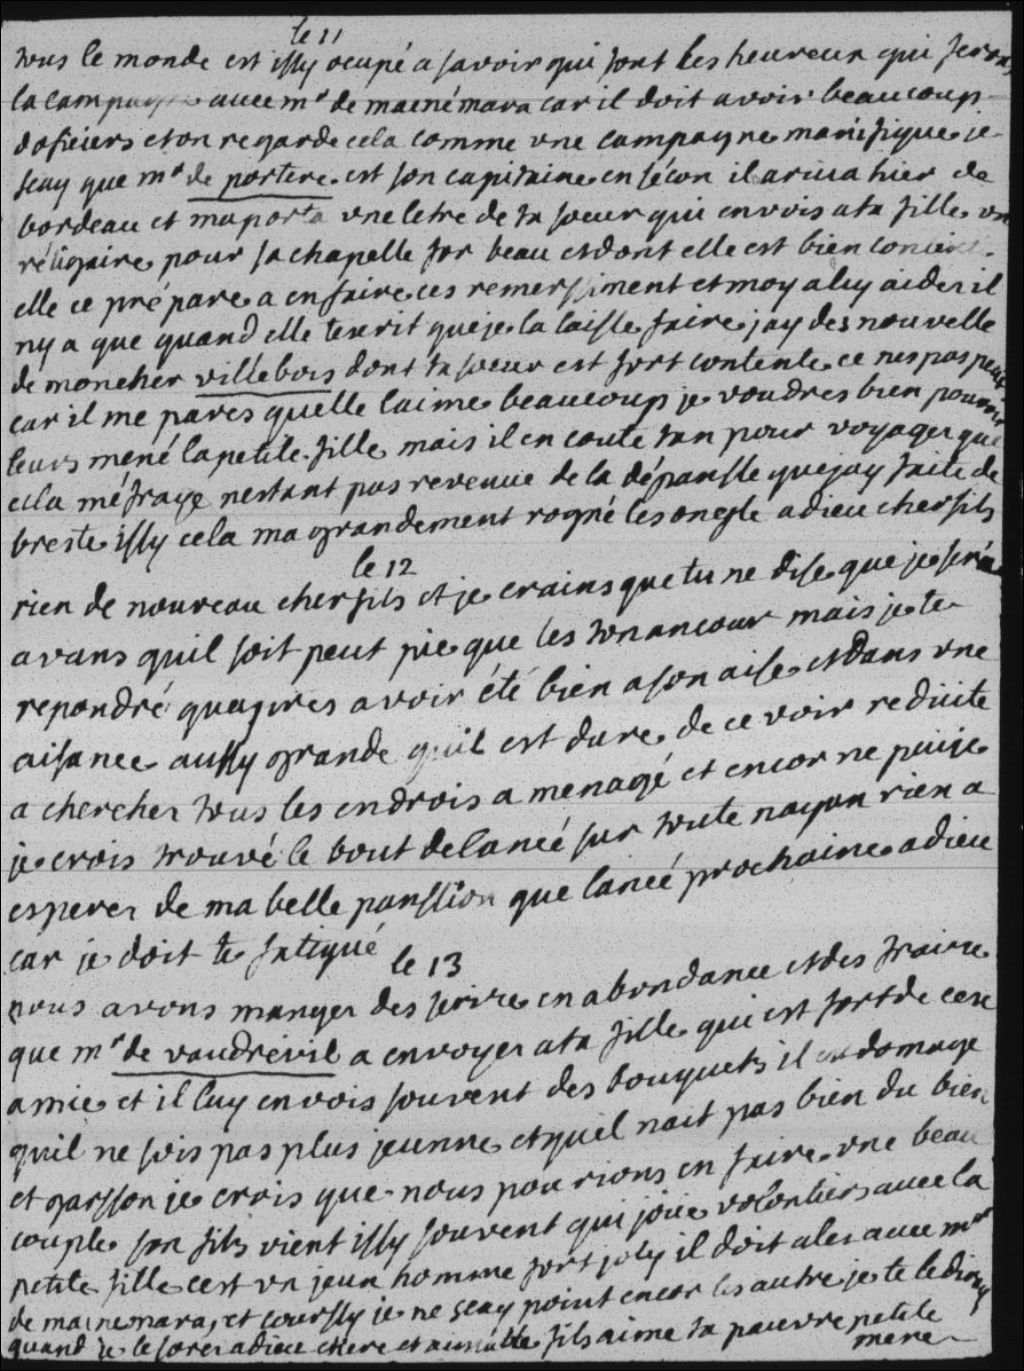 le 11
tous le monde est issy ocupé a savoir qui sont les heureux qui feron
la campagne avec mr de macnémara car il doit avoir beaucoup
dofisiers et on regarde cela comme une campagne manifique je
scay que mr de portere est son capitaine en sécon il ariva hier de
bordeau et maporta une letre de ta soeur qui envois a ta fille un
réliquaire pour sa chapelle for beau et dont elle est bien contente
elle ce prépare a en faire ces remersiment et moy a luy aider il
ny a que quand elle tescrit que je la laisse faire jay des nouvelle
de moncher villebois dont ta soeur est fort contente ce nes pas peu
car il me pares quelle laime beaucoup je voudres bien pouvoir
leurs mené la petite fille mais il en coute tan pour voyager que
cela méfraye nestant pas revenue de la dépansse que jay faite de
breste issy cela ma grandement rogné les ongle adieu cher fils
le 12
rien de nouveau cher fils et je crains que tu ne dise que je seré
avans quil soit peut pie que les mais je te
repondré quapres avoir été bien a son aise et dans une
aisance aussy grande quil est dure de ce voir reduite
a chercher tous les endrois a menagé et encor ne puije
je crois trouvé le bout de lancé sur toute naçon rien a
esperer de ma belle panssion que lancé prochaine adieu
car je doit te fatigué
le 13
nous avons manger des en abondance et des fraire
que mr de vaudrevil a envoyer a ta fille qui est fort de cese
amie et il luy envois souvent des bouquets il est domage
quil ne sois pas plus jeunne et quil nait pas bien du bien
et garsson je crois que nous pourions en faire une beau
couple son fils vient issy souvent qui joüe volontiers avec la
petite fille cest un jeun homme fort joly il doit aler avec mr
de macnemara, et courssy je ne scay point encor les autre je te le diray
quand je le sores adieu chere et aimable fils aime ta pauvre petite
mere